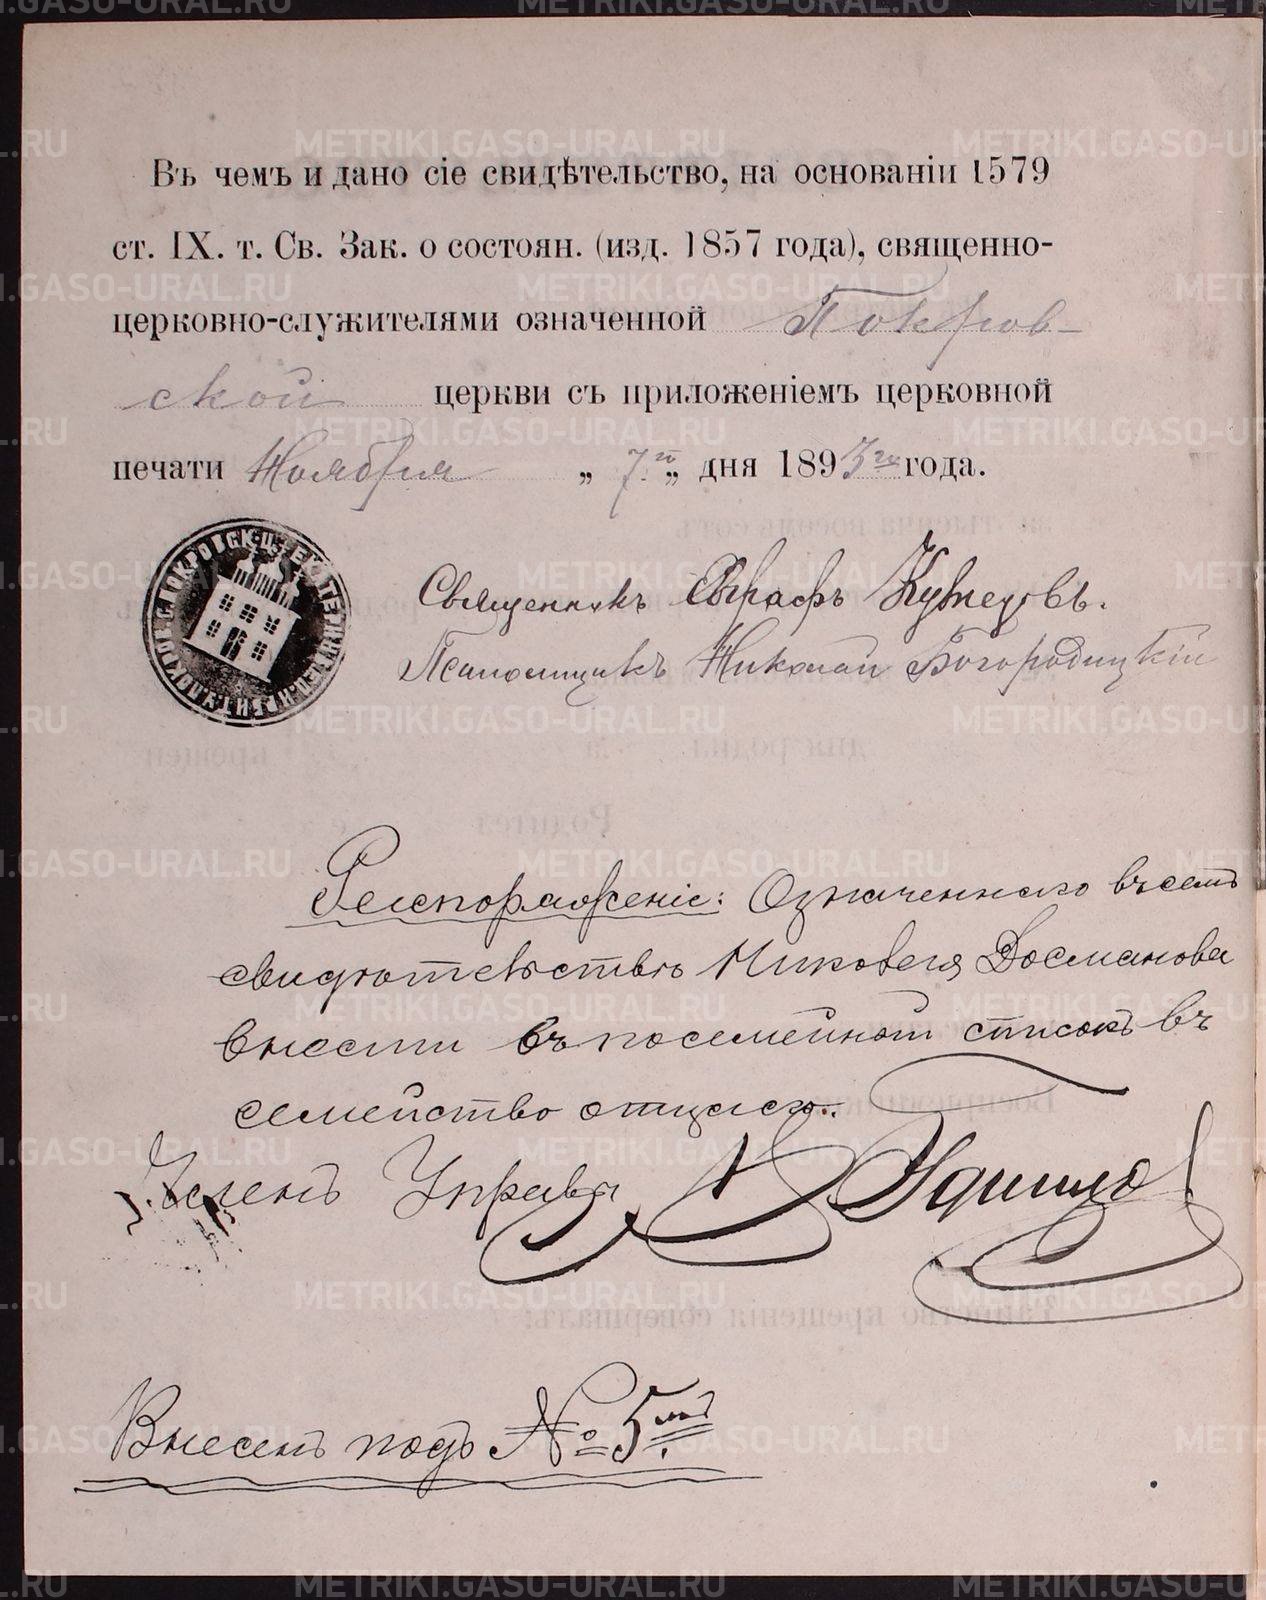 Въ чемъ и дано сіе свидѣтельство, на основаніи 1579
ст. IX. т. Св. Зак. о состоян. (изд. 1857 года), священно-
церковно-служителями означенной Покров-
ской церкви съ приложеніемъ церковной
печати Ноября „ 7го „ дня 1893го года.
Священникъ Евграфъ Кузнецовъ.
Псаломщикъ Николай Богородицкій
Распоряженіе: Означеннаго въ семъ
свидѣтельствѣ Николая Досманова
внести въ посемейный списокъ въ
семейство отцаего.
Членъ Управы
Внесенъ подъ № 5мъ.
METRIKI.GASO-URAL.RU